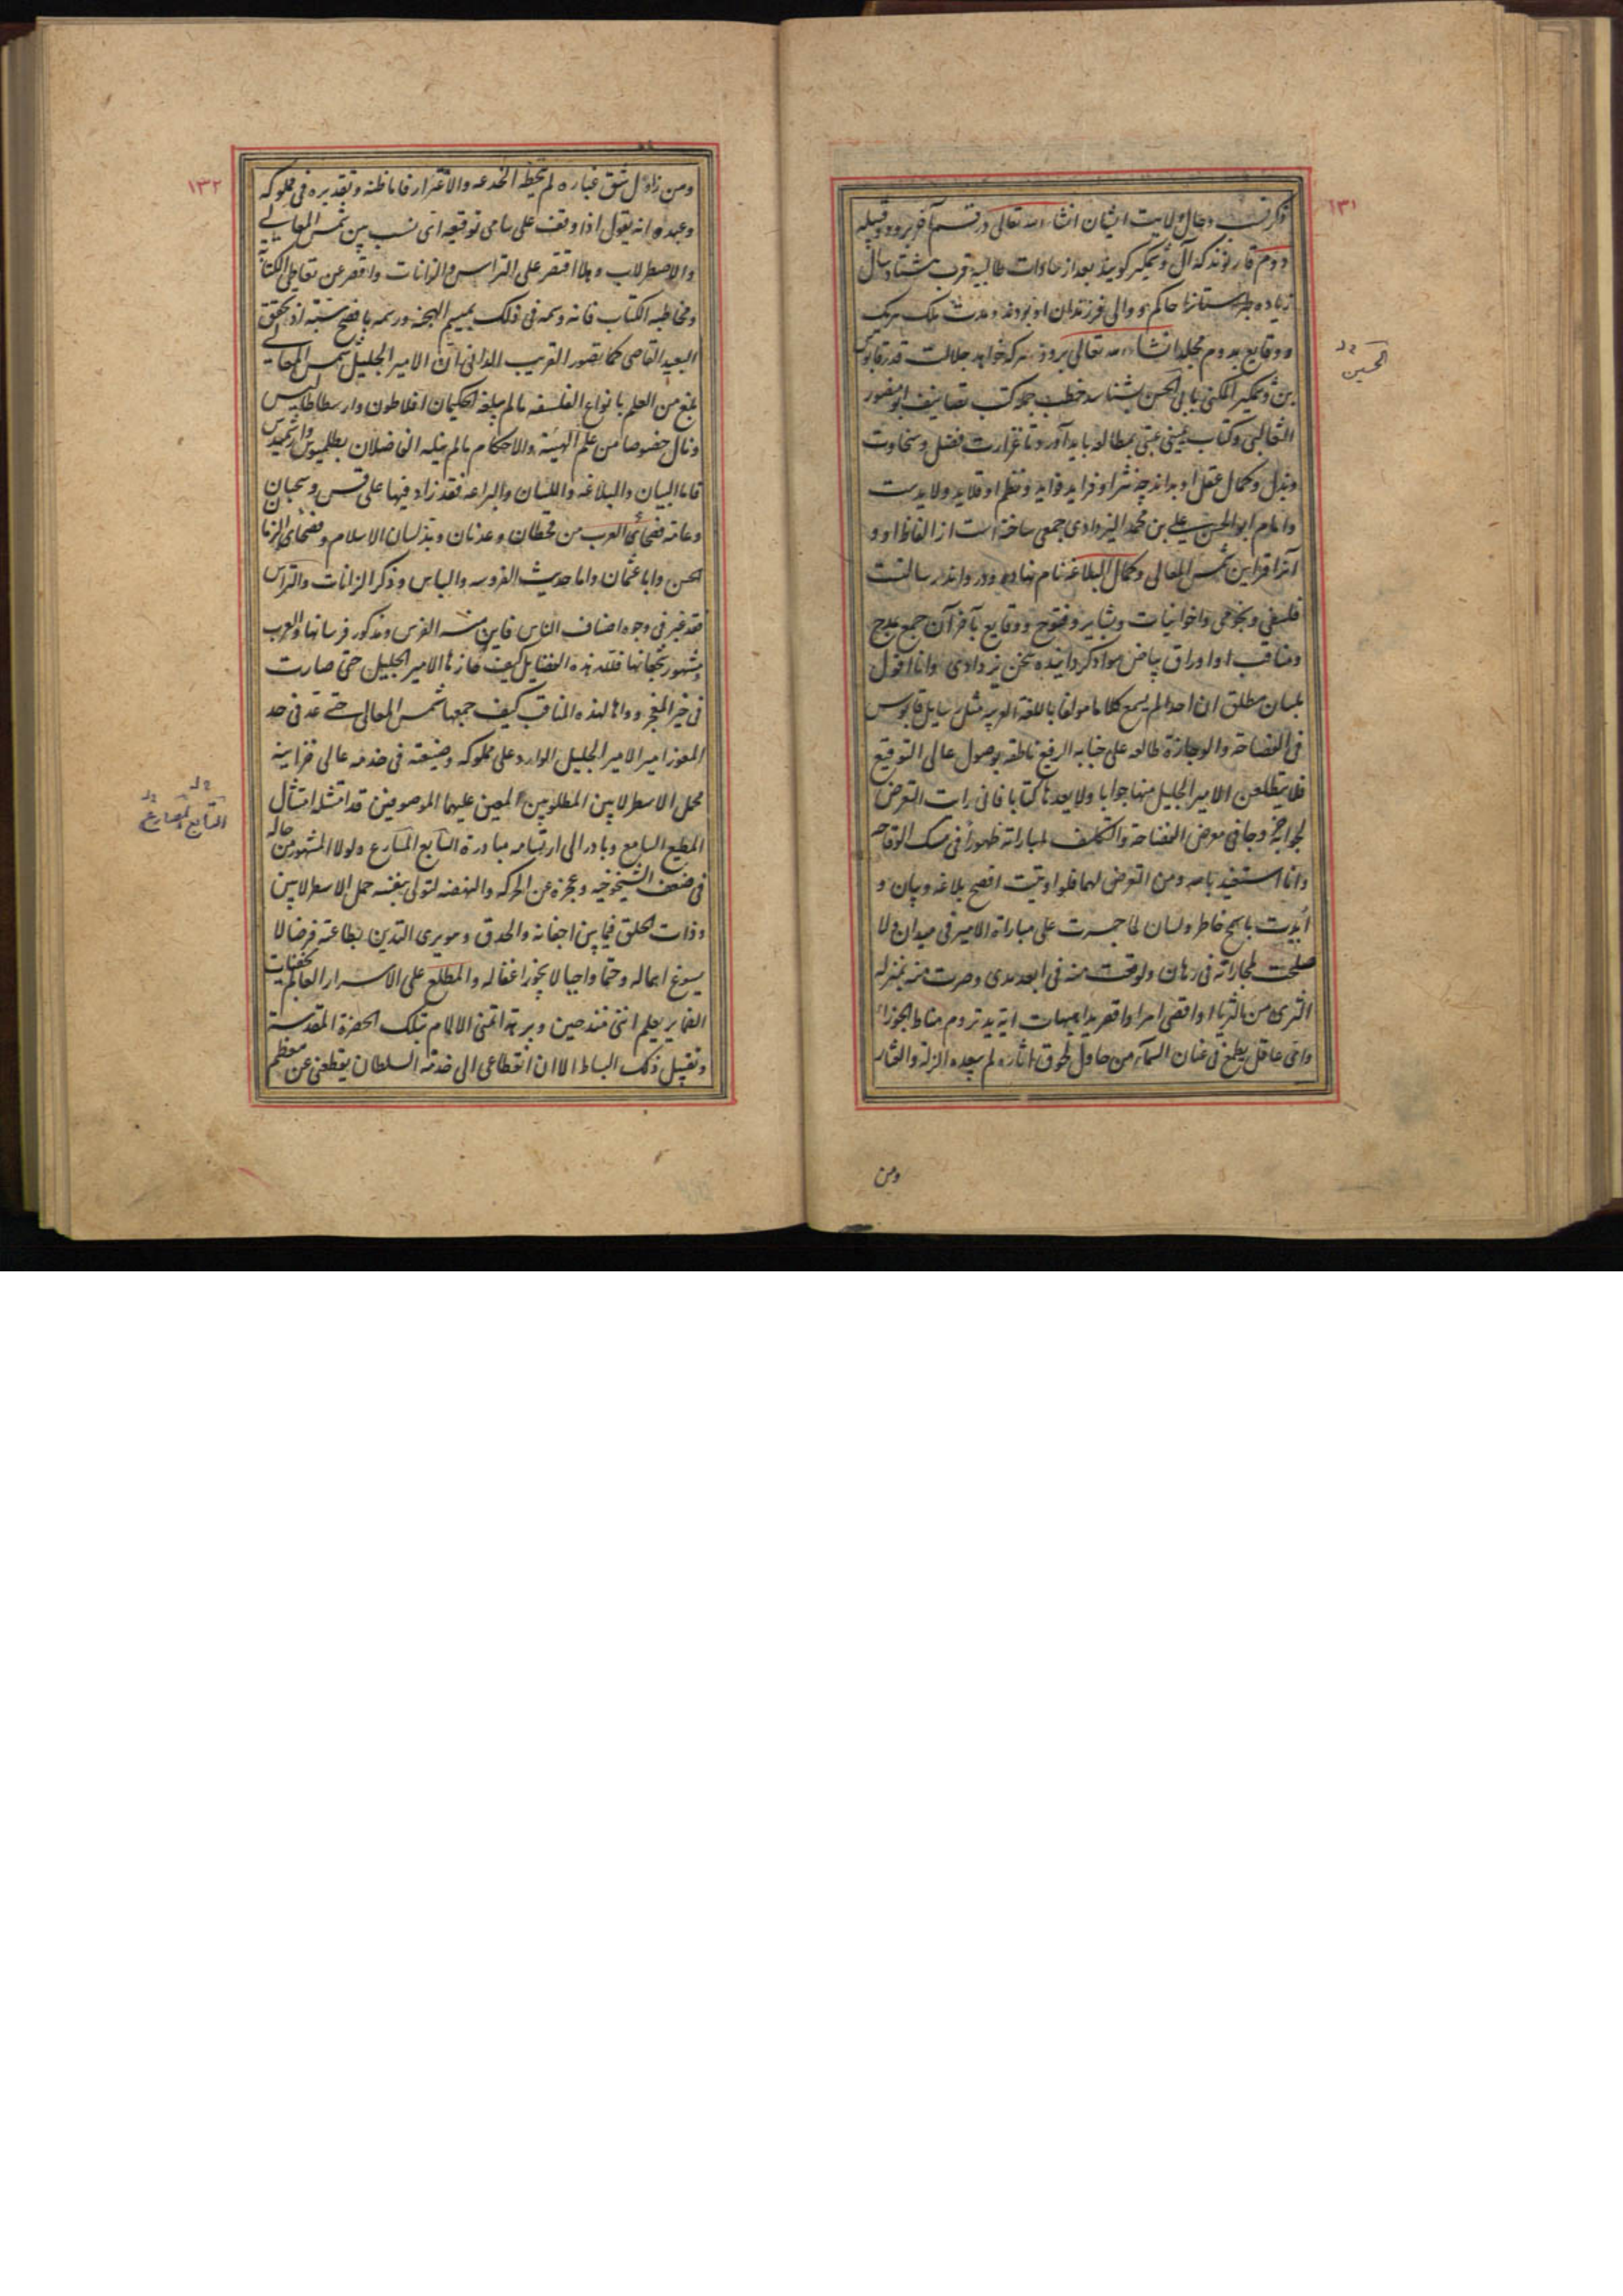 ۱۳۱
ذکر قب و حال ولایت ایشان انشاء الله تعالی در قسم آخر برود و قبیله
دوم قارنوند که آل وشمکیر کویند بعد از سادات طالبیه قرب هشتاد سال
زیاده طبرستانرا حاکم و والی فرزندان او بودند و مدت ملک هریک
و وقایع بدوم مجلد انشاء الله تعالی برود هر که خواهد جلالت قدر قابوس
بن وشمکیر المکنی بابی الحسن بشناسد خطب جمله کتب تصانیف ابو منصور
الثعالبی و کتاب یمینی عتبی بمطالعه باید آورد تا غزارت فضل و سخاوت
و بذل و کمال عقل او بداند چه نثر او فراید فواید و نظم او قلاید ولایدست
و امام ابو الحسن علی بن محمد الیزدادی جمعی ساخته است از الفاظ او و
آنرا قراین شمس المعالی و کمال البلاغه نام نهاده و درو اندر رسالتست
فلسفی و نجومی و اخوانیات و بشایر و فتوح و وقایع بآخر آن جمع بمدح
و مناقب او اوراق بیاض سواد کردانیده سخن یزدادی وانا اقول
بلسان مطلق ان احدا لم یسمع کلاما مولفا باللغة العربیه مثل رسایل قابوس
فی الفصاحة والوجازة طالعه علی جنابه الرفیع ناطقه بوصول عالی التوقیع
فلا یتطلعن الامیر الجلیل منها جوابا ولا یعدها کتابا فانی رایت التعرض
لجوابه خروجا فی معرض الفصاحة والتکلف لمباراته ظهورا فی مسک الوقاحه
وانا استعیذ بالله ومن التعرض لهما فلو اوتیت افصح بلاغه و بیان و
ایدت بابهج خاطر و لسان لما جسرت علی مباراة الامیر فی میدان ولا
صلحت لمجاراته فی رهان ولوقعت منه فی ابعد مدی وصرت منه بمنزله
الثری من الثریا او اقصی امرا واقصر یدا هیهات ایة ید تروم مناط الجوزاء
وای عاقل یطمع فی عنان السمآء من حاول لحوق اثاره لم یعده الزلة والعثار
ومن
الحسین
۱۳۲
ومن زاول شق غباره لم یخطه الخدعه والاغترار فاما ظنه وتقدیره فی مملوکه
وعبده وانه یقول اذا وقف علی سامی توقیعه ای نسب بین شمس المعالی
والاصطرلاب وهلا اقتصر علی التراس والزانات واقصر عن تعاطی الکتابه
ومخاطبه الکتاب فانه وسمه فی ذلک بمیسم الهجنه ورسمه باقبح سبة اذ تحقق
البعید القاصی کما یتصور القریب الدانی ان الامیر الجلیل شمس المعالی
بلغ من العلم بانواع الفلسفه مالم یبلغه الحکیمان افلاطون وارسطاطالیس
ونال خصوصا من علم الهیئة والاحکام مالم ینله الفاضلان بطلمیوس وارشمیدس
فاما البیان والبلاغه واللسان والبراعه فقد زاد فیها علی قس وسحبان
وعامه فصحائی العرب من قحطان وعدنان وبذ لسان الاسلام وفصحای الزمان
الحسن وابا عثمان واما حدیث الفروسه والباس وذکر الزانات والتراس
فقد غبر فی وجوه اصناف الناس فاین منه الفرس ومذکور فرسانها والعرب
ومشهور شجعانها فلله هذه الفضایل کیف حازها الامیر الجلیل حتی صارت
فی حیز المفخر وواها لهذه المناقب کیف جمعها شمس المعالی حتی عد فی حد
المعوز امیر الامیر الجلیل الوارد علی مملوکه وضیعته فی خدمه عالی خزاینه
محل الاسطرلابین المطلوبین المعین علیهما الموصوفین قد امتثله امتثال
المطیع السامع وبادر الی ارتسامه مبادرة السابع المسارع ولولا المشهور من حاله
فی ضعف الشیخوخیه وعجزه عن الحرکه والنهضه لتولی بنفسه حمل الاسطرلابین
وذات الحلق فیما بین اجفانه والحدق ومویری التدین بطاعته فرضا لا
یسوغ اهماله وحتما واجبا لا یجوز اغفاله والمطلع علی الاسرار العالم بخفیات
الضمایر یعلم اننی منذ حین وبرهة اتمنی الالمام بتلک الحضرة المقدسة
وتقبیل ذلک البساط الا ان انقطاعی الی خدمة السلطان یقطعنی عن معظم
التابع المصارع